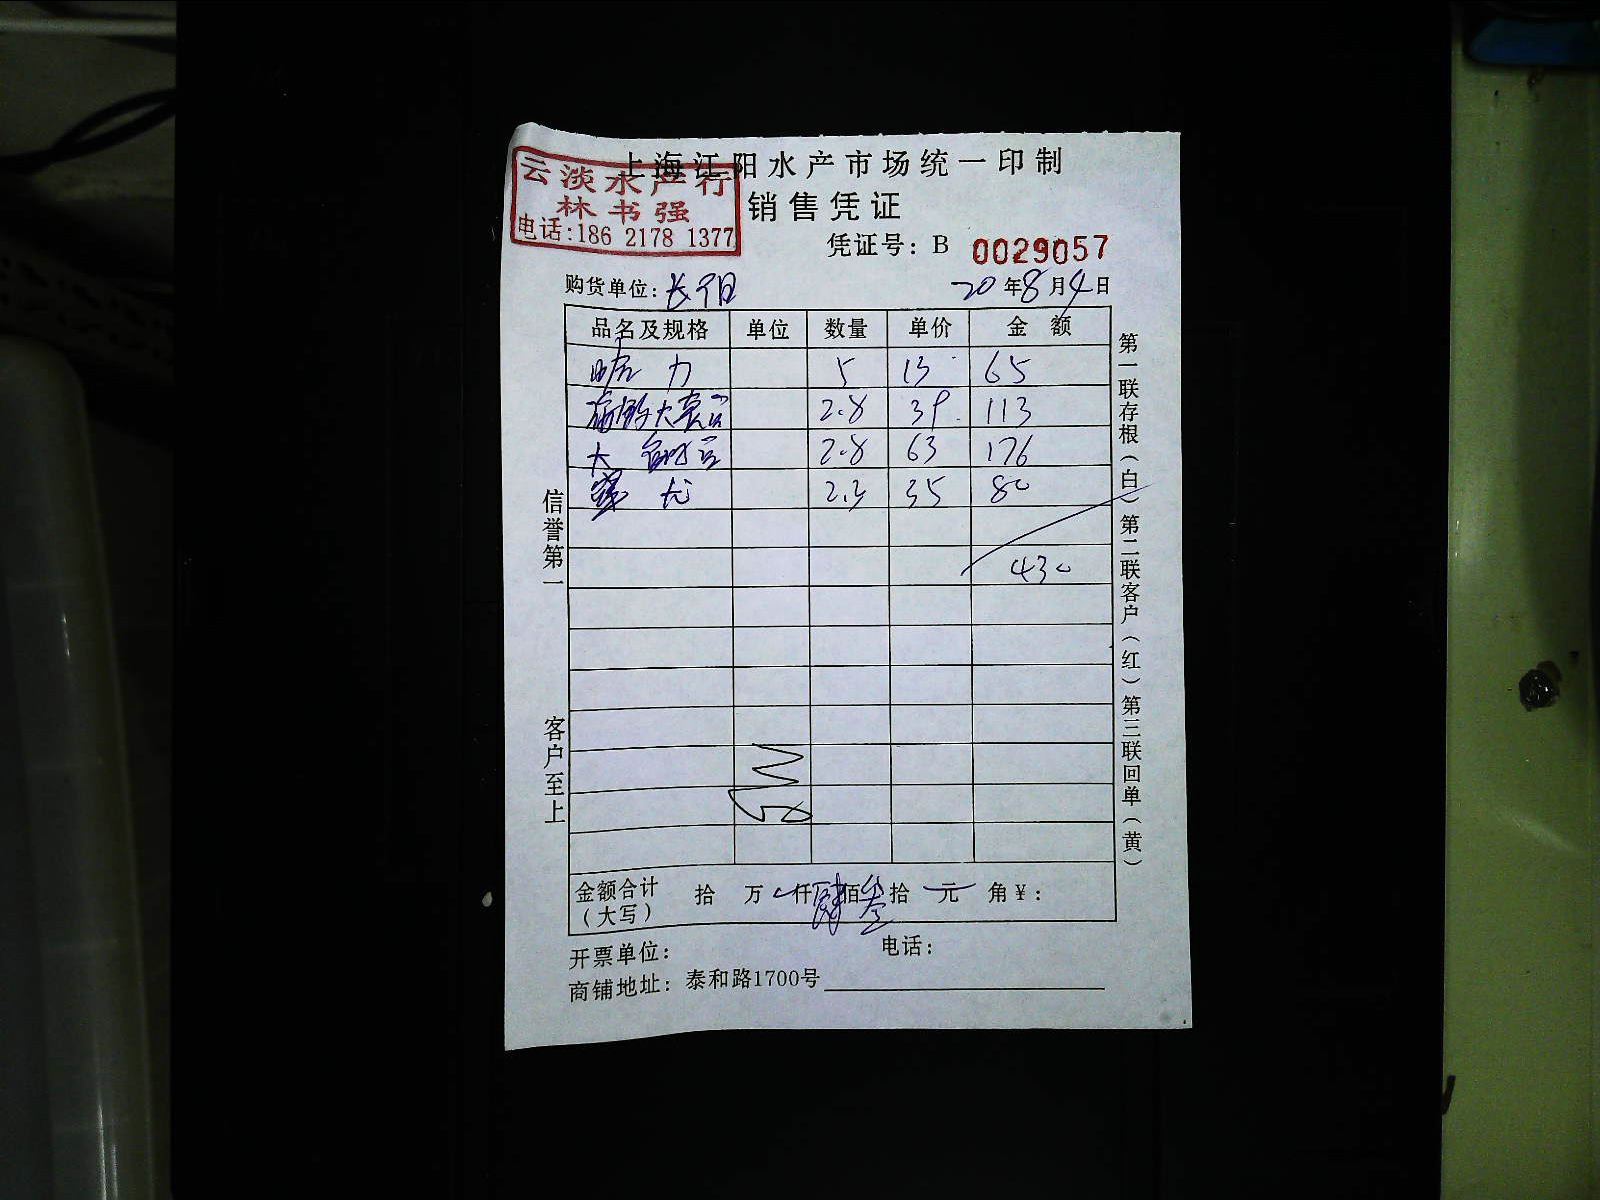 上海江阳水产市场统一印制
云淡水产行
林书强
电话:186 2178 1377
销售凭证
凭证号: B 0029057
购货单位: 长阳 20年8月4日
品名及规格 单位 数量 单价 金额
力 5 13 65
2.8 39 113
大 2.8 63 176
2.3 35 80
430
金额合计(大写) 拾 万 仟肆佰叁拾 元 角¥:
开票单位: 电话:
商铺地址: 泰和路1700号
信誉第一 客户至上
第一联存根(白)第二联客户(红)第三联回单(黄)